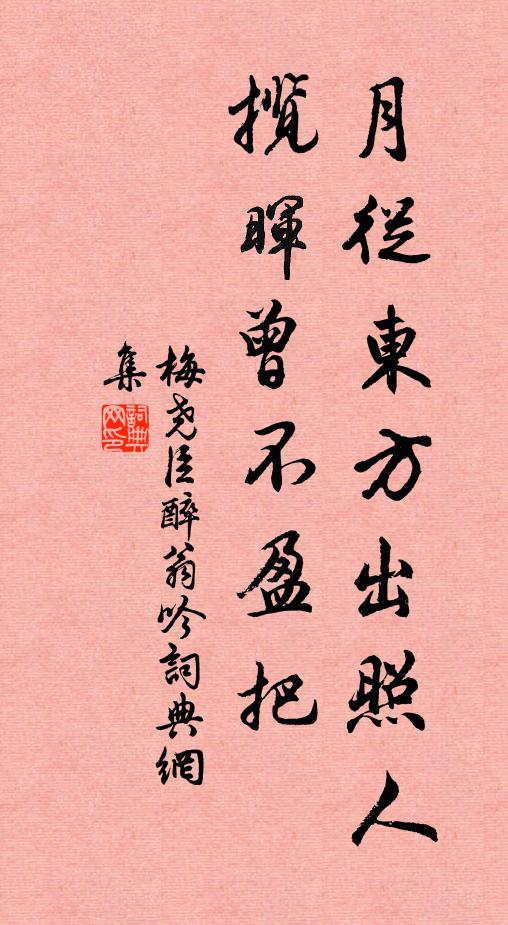 月從東方出照人
攬暉曾不盈把
梅堯臣醉翁吟詞典網
集
詞典
网印